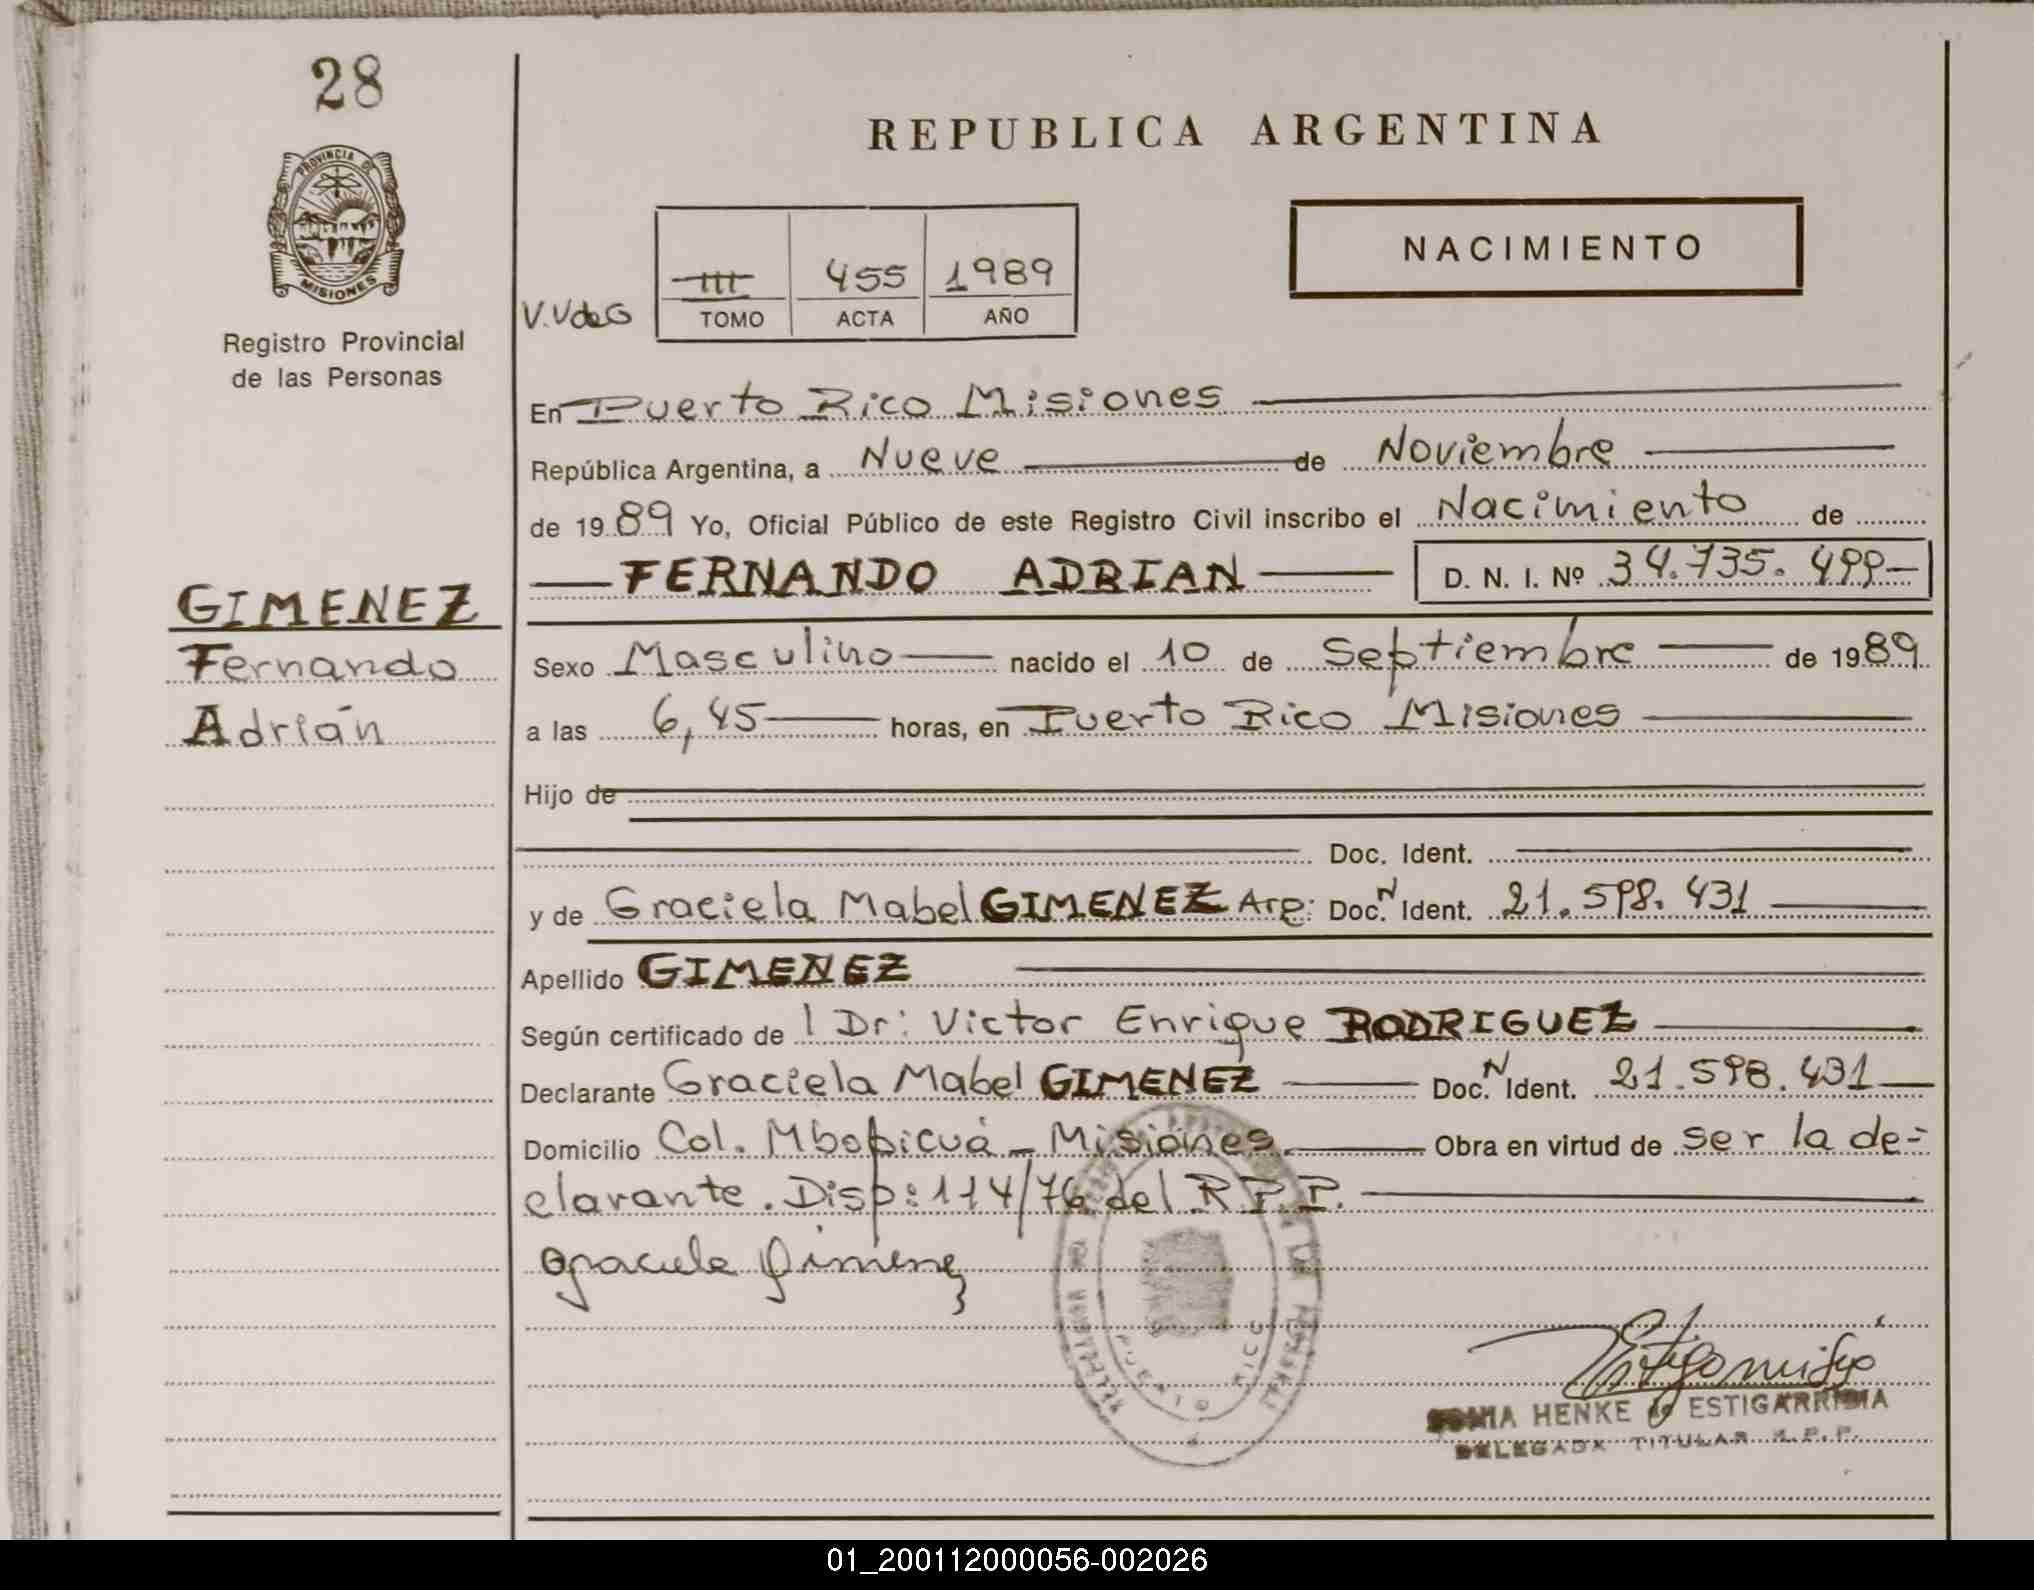 28
PROVINCIA DE
MISIONES
Registro Provincial
de las Personas
GIMENEZ
Fernando
Adrián
REPUBLICA ARGENTINA
NACIMIENTO
III 455 1989
V.V de G TOMO ACTA AÑO
En Puerto Rico Misiones
República Argentina, a Nueve de Noviembre
de 1989 Yo, Oficial Público de este Registro Civil inscribo el Nacimiento de
FERNANDO ADRIAN D. N. I. Nº 34.735.499-
Sexo Masculino nacido el 10 de Septiembre de 1989
a las 6,45 horas, en Puerto Rico Misiones
Hijo de
Doc. Ident.
y de Graciela Mabel GIMENEZ Arg: Doc. N Ident. 21.598.431
Apellido GIMENEZ
Según certificado de l Dr: Victor Enrique RODRIGUEZ
Declarante Graciela Mabel GIMENEZ Doc. N Ident. 21.598.431
Domicilio Col. Mbopicuá - Misiones Obra en virtud de ser la de=
clarante. Disp: 114/76 del R.P.P.
Graciela Gimenez
PUERTO RICO
SONIA HENKE de ESTIGARRIBIA
DELEGADA TITULAR R.P.P.
01_200112000056-002026